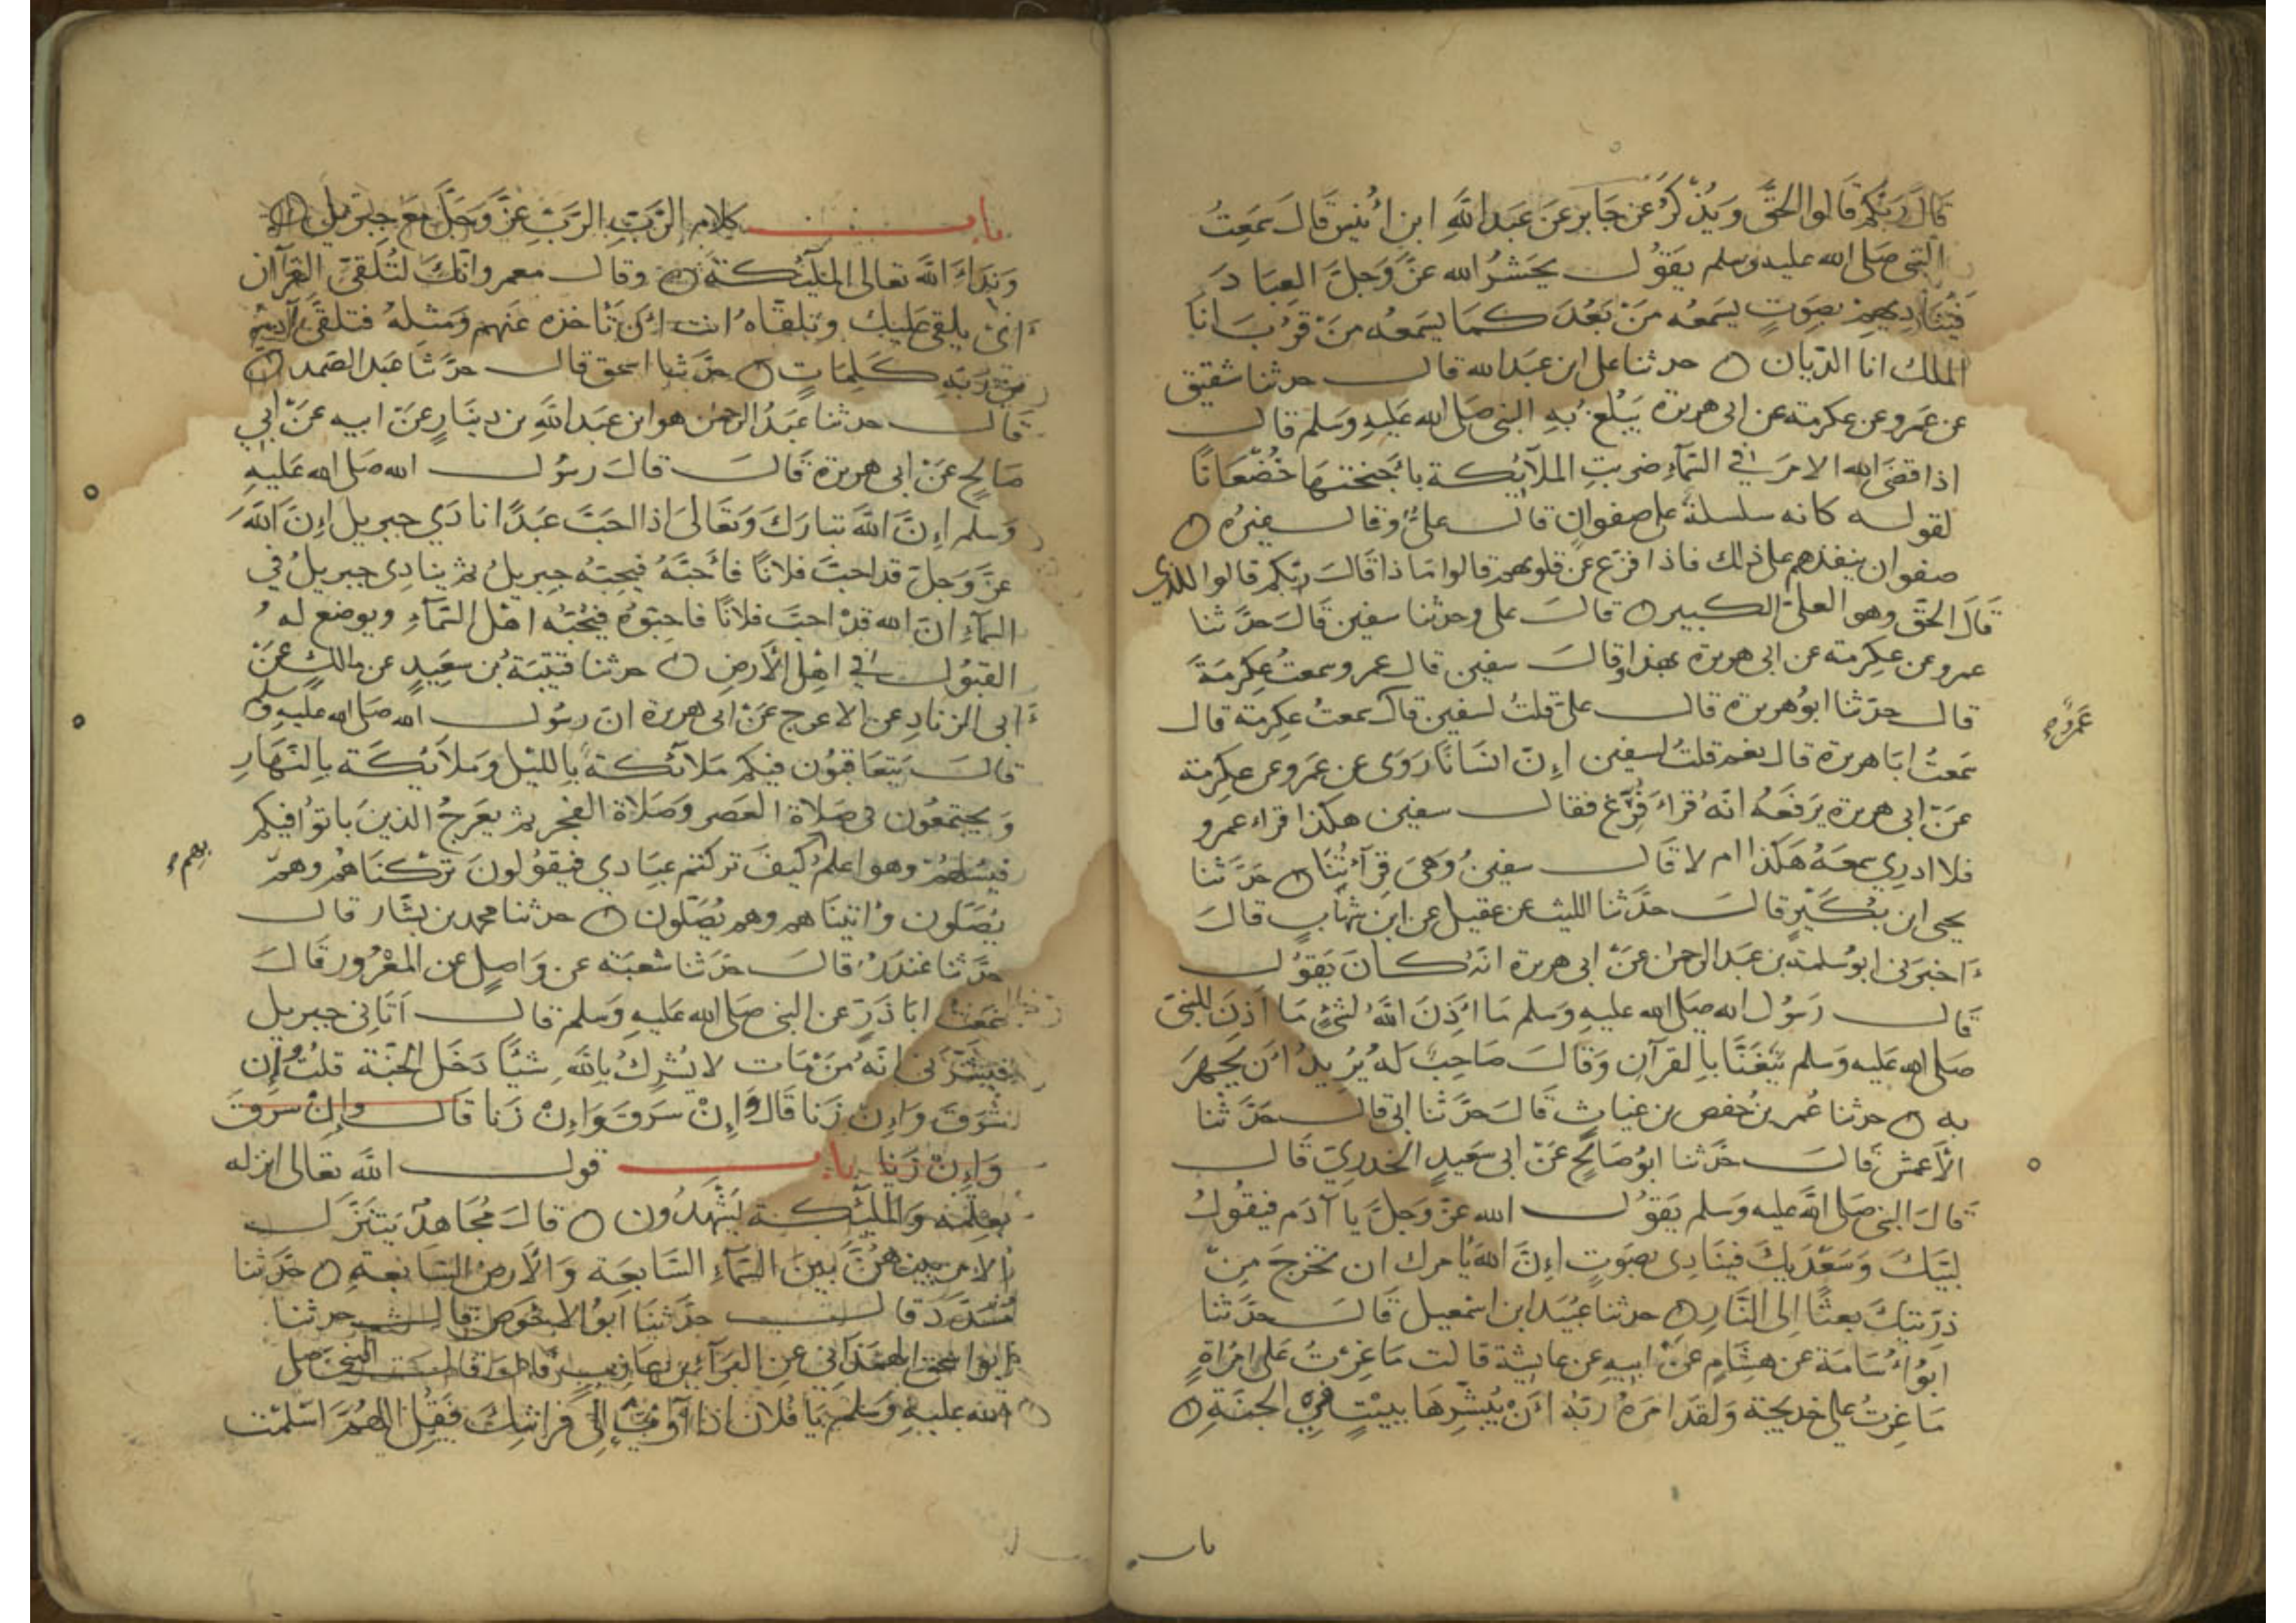 قَالَ رَبُّكُمْ قَالُوا الحَقَّ وَيُذْكَرُ عَن جَابِرٍ عَن عَبْدِ اللَّهِ ابن أُنَيْس قَالَ سَمِعتُ
النبي صَلى الله عليه وسلم يَقُولُ يَحْشُرُ الله عَزَّ وَجَلَّ العِبَادَ
فَيُنَادِيهِمْ بصَوتٍ يَسمَعُه مَنْ بَعُدَ كَمَا يسمَعُه مَنْ قَرُبَ انَا
الملك انا الدّيان ه حدثنا على ابن عَبدالله قال حدثنا سفيٰن
عن عَمرو عن عكرمة عن ابى هريرة يَبلغ بِهِ النبى صَلى الله عَلَيهِ وَسَلم قال
اذا قضَى الله الامرَ فِي السَّمَاءِ ضربتِ الملآئكة بأجنحتهَا خُضْعَانًا
لقوله كانه سلسلةٌ على صفوانٍ قال علىٌّ وقال غيرُه ه
صفوان ينفذهم على ذلك فاذا فزع عن قلوبهم قالوا مَاذا قَالَ ربّكم قالوا للذي
قَالَ الحَقَّ وهو العلىّ الكبير ه قالَ على وحدثنا سفين قَالَ حدَّثنا
عمرو عن عِكرِمة عن ابى هريرة بهذا وقالَ سفين قال عمرو سمعتُ عِكرِمَةَ
قال حدّثنا ابُو هريرة قال علىّ قلتُ لسفين قال سمعتُ عِكرمة قال
عَمرًا
سَمعتُ ابَا هريرة قال نعم قلتُ لسفين إِنّ انسَانًا رَوَى عن عَمرو عن عِكرِمة
عَنْ ابى هريرة يَرفَعُهُ انَّهُ قرَاءَ فُرِّغ فقال سفين هكذا قراء عمرو
فلا ادرِي سمعَهُ هَكذا ام لا قَال سفينُ وَهىَ قِرآئتُنَا ه حَدَّثنا
يحيى ابن بُكَيْرٍ قالَ حدَّثنا الليث عن عقيل عن ابن شهَابٍ قالَ
اخبَرنى ابو سَلمة بن عَبد الرحمٰن عَنْ ابى هريرة انّهُ كَانَ يَقُولُ
قَال رَسُول الله صلى الله عليهِ وَسلم مَا أَذِنَ اللَّهُ لشىْءٍ مَا أذِنَ للنبىّ
صَلى الله عَليه وَسلم يَتَغَنَّا بالقرآن وَقالَ صَاحِبٌ لَه يُرِيدُ أن يجهَرَ
به ه حدثنا عُمر بن حفص بن غياثٍ قَالَ حدَّثنا ابى قال حَدَّثنا
الأَعمش قَالَ حَدّثنا ابُو صَالحٍ عَنْ ابى سَعيدٍ الخدرِيّ قَال
قَالَ النبي صَلى الله عليه وسلم يَقُولُ الله عزّ وَجلّ يا آدم فيقُولُ
لبيّكَ وَسَعْدَيكَ فينَادى بصَوتٍ إِنَّ اللهَ يَامرك ان تخرجَ مِنْ
ذرّيتك بعثًا اِلى النَّارِ ه حدثنا عُبَيد ابن اسْمعيل قَالَ حدَّثنا
ابُو أُسَامَة عن هشَامٍ عَنْ ابيهِ عن عايشة قالت مَا غِرْتُ عَلى امْرَاةٍ
مَا غِرتُ على خديجة وَلقد امَرَهُ ربّهُ أنْ يُبَشِّرهَا ببيْتٍ فِي الجنّةِ ه
باب
باب كلام الرَّبِّ الرَّبِّ عَزَّ وَجَلَّ مَعَ جِبْرِيلَ ه
وَنِدَاءَ اللَّه تعالى الملآئكة ه وقال معمر وانّك لتُلَقىّ القرآن
اىْ يلقى عَليك وتَلقّاهُ انت اىْ تَأخذه عَنهم وَمِثلهُ فتلقَّى آدَمُ
مِنْ رَبّهِ كَلِمَاتٍ ه حدَّثنا اسحق قال حدَّثنا عَبد الصّمد ه
قَال حدثنا عَبْدُ الرحمٰن هو ابن عَبد الله بن دينَارٍ عَنْ ابيه عَنْ ابي
صَالحٍ عَنْ ابى هريرة قَالَ قالَ رسُول الله صَلى الله عَلَيهِ
وَسَلم إِنَّ اللَّهَ تبارَكَ وَتعَالىَ اذا احَبَّ عَبدًا نادَي جبريل إِنَّ اللَّهَ
عَزَّ وَجَلّ قد احبّ فلانًا فأَحبَّهُ فَيُحِبّهُ جِبريلُ ثم ينادِى جبريلُ في
السَّمَاءِ انّ الله قدْ احبّ فلانًا فاحِبّوهُ فيُحبّهُ اهْل السَّمَاءِ ويوضع لهُ
القبُول فِي اهْلِ الأَرضِ ه حدثنا قتيبَة بُن سعَيدٍ عن مالكٍ عَنْ
ابى الزنادِ عن الاعرج عَنْ ابى هريرة انّ رسُول الله صَلى الله عليهِ وسلم
قالَ يَتعَاقبُون فيكم مَلآئكة باِلليْل وَملآئكَة بِالنّهَارِ
وَيجتمعُون فى صَلاة العَصر وَصَلاة الفجر ثم يعَرجُ الذينَ باتوا فيكم
فيسْلهُمْ وهو اعلمُ كيفَ تركتم عِبَادي فيقُولونَ تركنَاهُمْ وهمْ
بِهِم
يُصَلّون واتينَاهم وهم يُصَلّون ه حدثنا محمد بن بشَّار قال
حدَّثنا غندَرُ قالَ حَدَّثنا شعبَة عن وَاصِلٍ عن المعْرُور قَالَ
سَمعتُ ابَا ذَرٍ عن النبى صَلى الله عَليهِ وَسلم قال اَتَانى جبريل
فبشّرَنى انَّهُ مَنْ مَات لا يُشرِكُ بِاللَّهِ شيْئًا دَخَل الجَنّة قلتُ وَإِن
سَرَقَ وَاِنْ زَنا قَال وَاِنْ سَرَقَ وَاِنْ زَنا قَال وَاِنْ سَرَقَ
وَاِنْ زَنا باب قول اللَّه تعالى انزله
بعِلْمِهِ وَالملَئكة يَشْهَدُون ه قالَ مُجَاهدٌ يَتنزّل
الامر بينهُنَّ بَينَ السَّمَاءِ السَّابعَة وَالأرض السَّابعَةِ ه حدَّثنا
مُسَدّد قال حدَّثنَا ابُو الاحْوَص قال حدثنا
ابو اسحق الهمْدَانى عنِ البرآءِ بن عازبٍ قال قال النبى صَلى
الله عليهِ وَسَلم يَا فلان اذا آوَيْتَ إلى فراشِكَ فَقُل اللهُمّ اسْلمْت